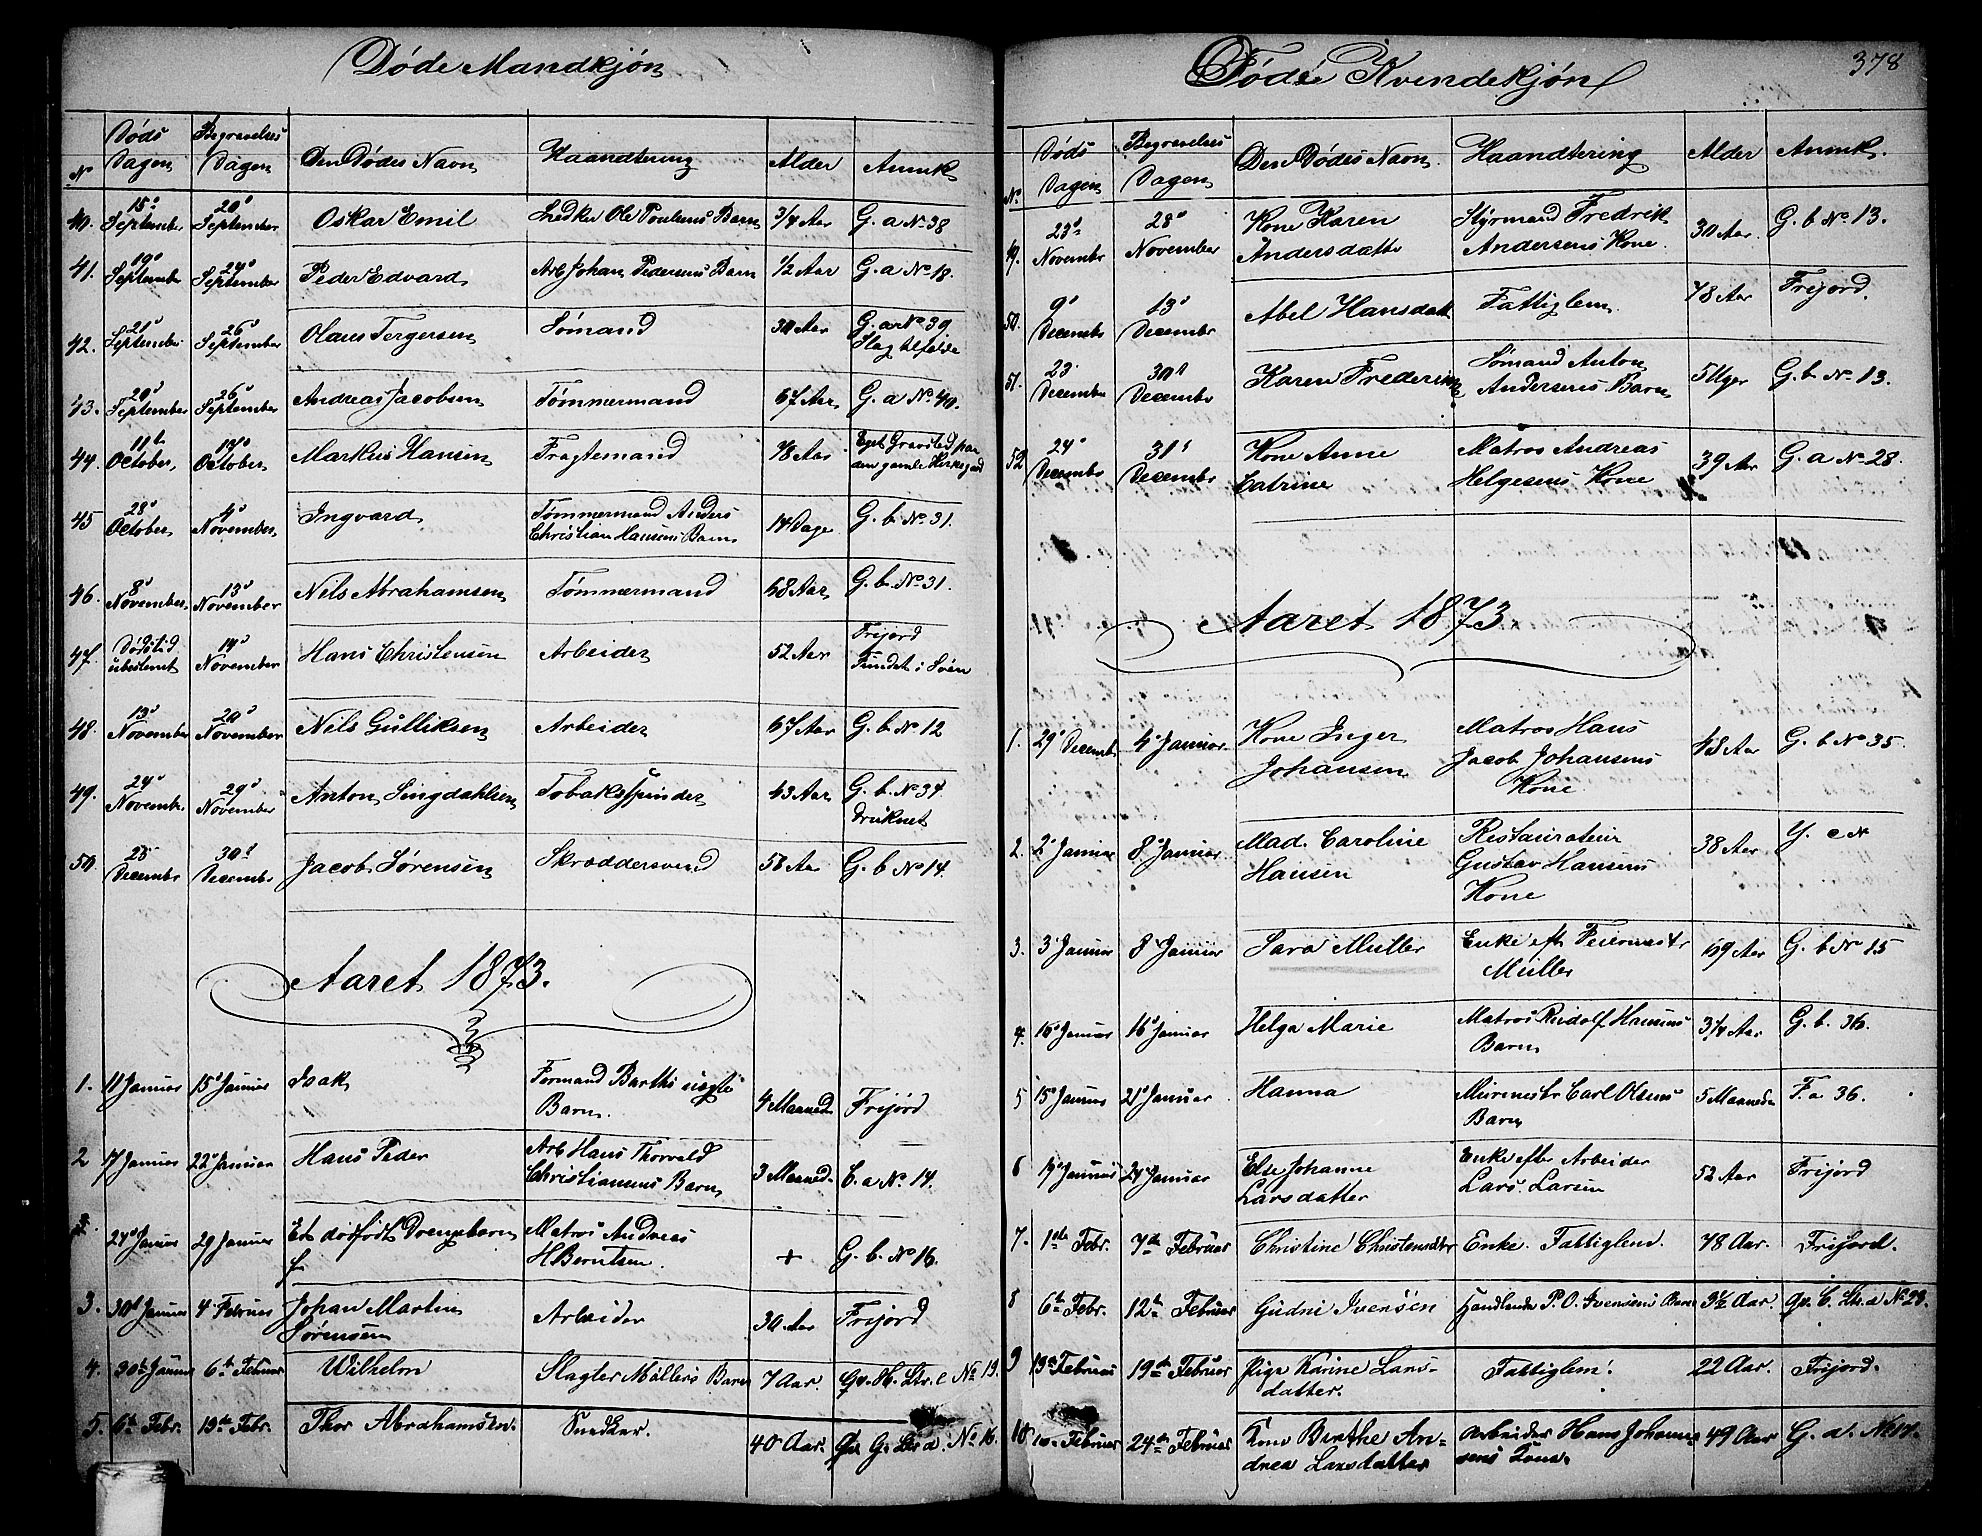 Døde Mandkjøn
No Døds Dagen Begravelses Dagen Den Dødes Navn Haandtering Alder Anmk
40. 15d September 20d September Oskar Emil Snedker Ole Poulsens Barn 3/4 Aar G. a No 38
41. 19d September 24d September Peder Edvard Arb Johan Pedersens Barn 1/2 Aar G. a No 18.
42. 21d September 26d September Olaus Tergersen Sømand 30 Aar G. a No 39. Slagtilfælde
43. 20d September 26d September Andreas Jacobsen Tømmermand 67 Aar G. a No 40.
44. 11te October 17d October Markus Hansen Fragtemand 78 Aar Eget Gravsted paa den gamle Kirkegaard
45 28d October 4d November Ingvard Tømmermand Anders
Christian Hansens Barn 14 Dage G. b No 31.
46. 8d November 13d November Nils Abrahamsen Tømmermand 68 Aar G. b. No 31.
47. Dødstid ubestemt 14d November Hans Christensen Arbeider 52 Aar Frijord Fundet i Søen
48. 13d November 20d November Nils Gulliksen Arbeider 67 Aar G. b No 12
49. 24d November 29d November Anton Singdahlsen Tobakspinder 43 Aar G. b. No 34. Druknet
50. 28 Decembr 30d Decembr Jacob Sørensen Skræddersvend 58 Aar G. b No 14.
Aaret 1873.
1. 11 Januar 15d Januar Isak Formand Barths uægte
Barn. 4 Maaned Frijord
2 17 Januar 22d Januar Hans Peder Arb Hans Thorvald
Christiansens Barn 3 Maaned C. a No 14.
24d Januar 29 Januar Et dødfødt Drengebarn Matros Andreas
H Berntsen. + G. b. No 16.
3. 30d Januar 4 Februar Johan Martin
Sørensen Arbeider 30 Aar Frijord
4. 30te Januar 6te Februar Wilhelm Slagter Møllers Barn 7 Aar. Gr. H. Ltr. c No 19.
5. 6te Febr. 13de Febr. Thor Abrahamsen. Snedker. 40 Aar. Gr. G. Ltr. a. No 16.
Døde Kvindekjøn 378
No Døds Dagen Begravelses Dagen Den Dødes Navn Haandtering Alder Anmk.
49. 23d Novembr 28d November Kone Karen
Andersdatter Styrmand Fredrik
Andersens Kone. 30 Aar G. b No 13.
50. 9d Decembr 13d Decembr Abel Hansdatt Fattiglem 78 Aar Frijord.
51. 23. Decembr 30d Decembr Karen Frederikke Sømand Anton
Andersens Barn 5 Uger G. b No 13.
52 24d Decembr 31d Decembr Kone Anne
Catrine Matros Andreas
Helgesens Kone 39 Aar G. a No 28.
Aaret 1873.
1. 29d Decembr 4d Januar Kone Inger
Johansen Matros Hans
Jacob Johansens
Kone 48 Aar G. b No 35.
2. 2d Januar 8d Januar Mad. Caroline
Hansen Restaurateur
Gustav Hansens
Kone 38 Aar Y. c No
3. 3d Januar 8d Januar Sara Müller Enke eft Feiermestr
Müller 69 Aar G. b No 15
4. 10d Januar 16d Januar Helga Marie Matros Rudolf Hansens
Barn 3/4 Aar G. b. 36.
5 15d Januar 21d Januar Hanna Murmestr Carl Olsens
Barn 5 Maaneder F. a 36.
6 19d Januar 24d Januar Else Johanne
Larsdatter Enke efter Arbeider
Lars. Larsen 52 Aar Frijord
7. 1ste Febr. 7de Februar Christine Christensdtr Enke. Fattiglem. 78 Aar. Frijord.
8 6te Febr. 12te Februar Gudni Ivensen Handlende P. O. Ivensens Barn 3 1/2 Aar. Gr. C. Ltr. a No 28.
9 13de Februar 19de Februar Pige Karine Lars-
datter. Fattiglem. 22 Aar. Frijord.
10 Februar 24de Februar Kone Berthe An=
drea Larsdatter Arbeider Hans Johann=
sens Kone. 49 Aar G. a. No 14.